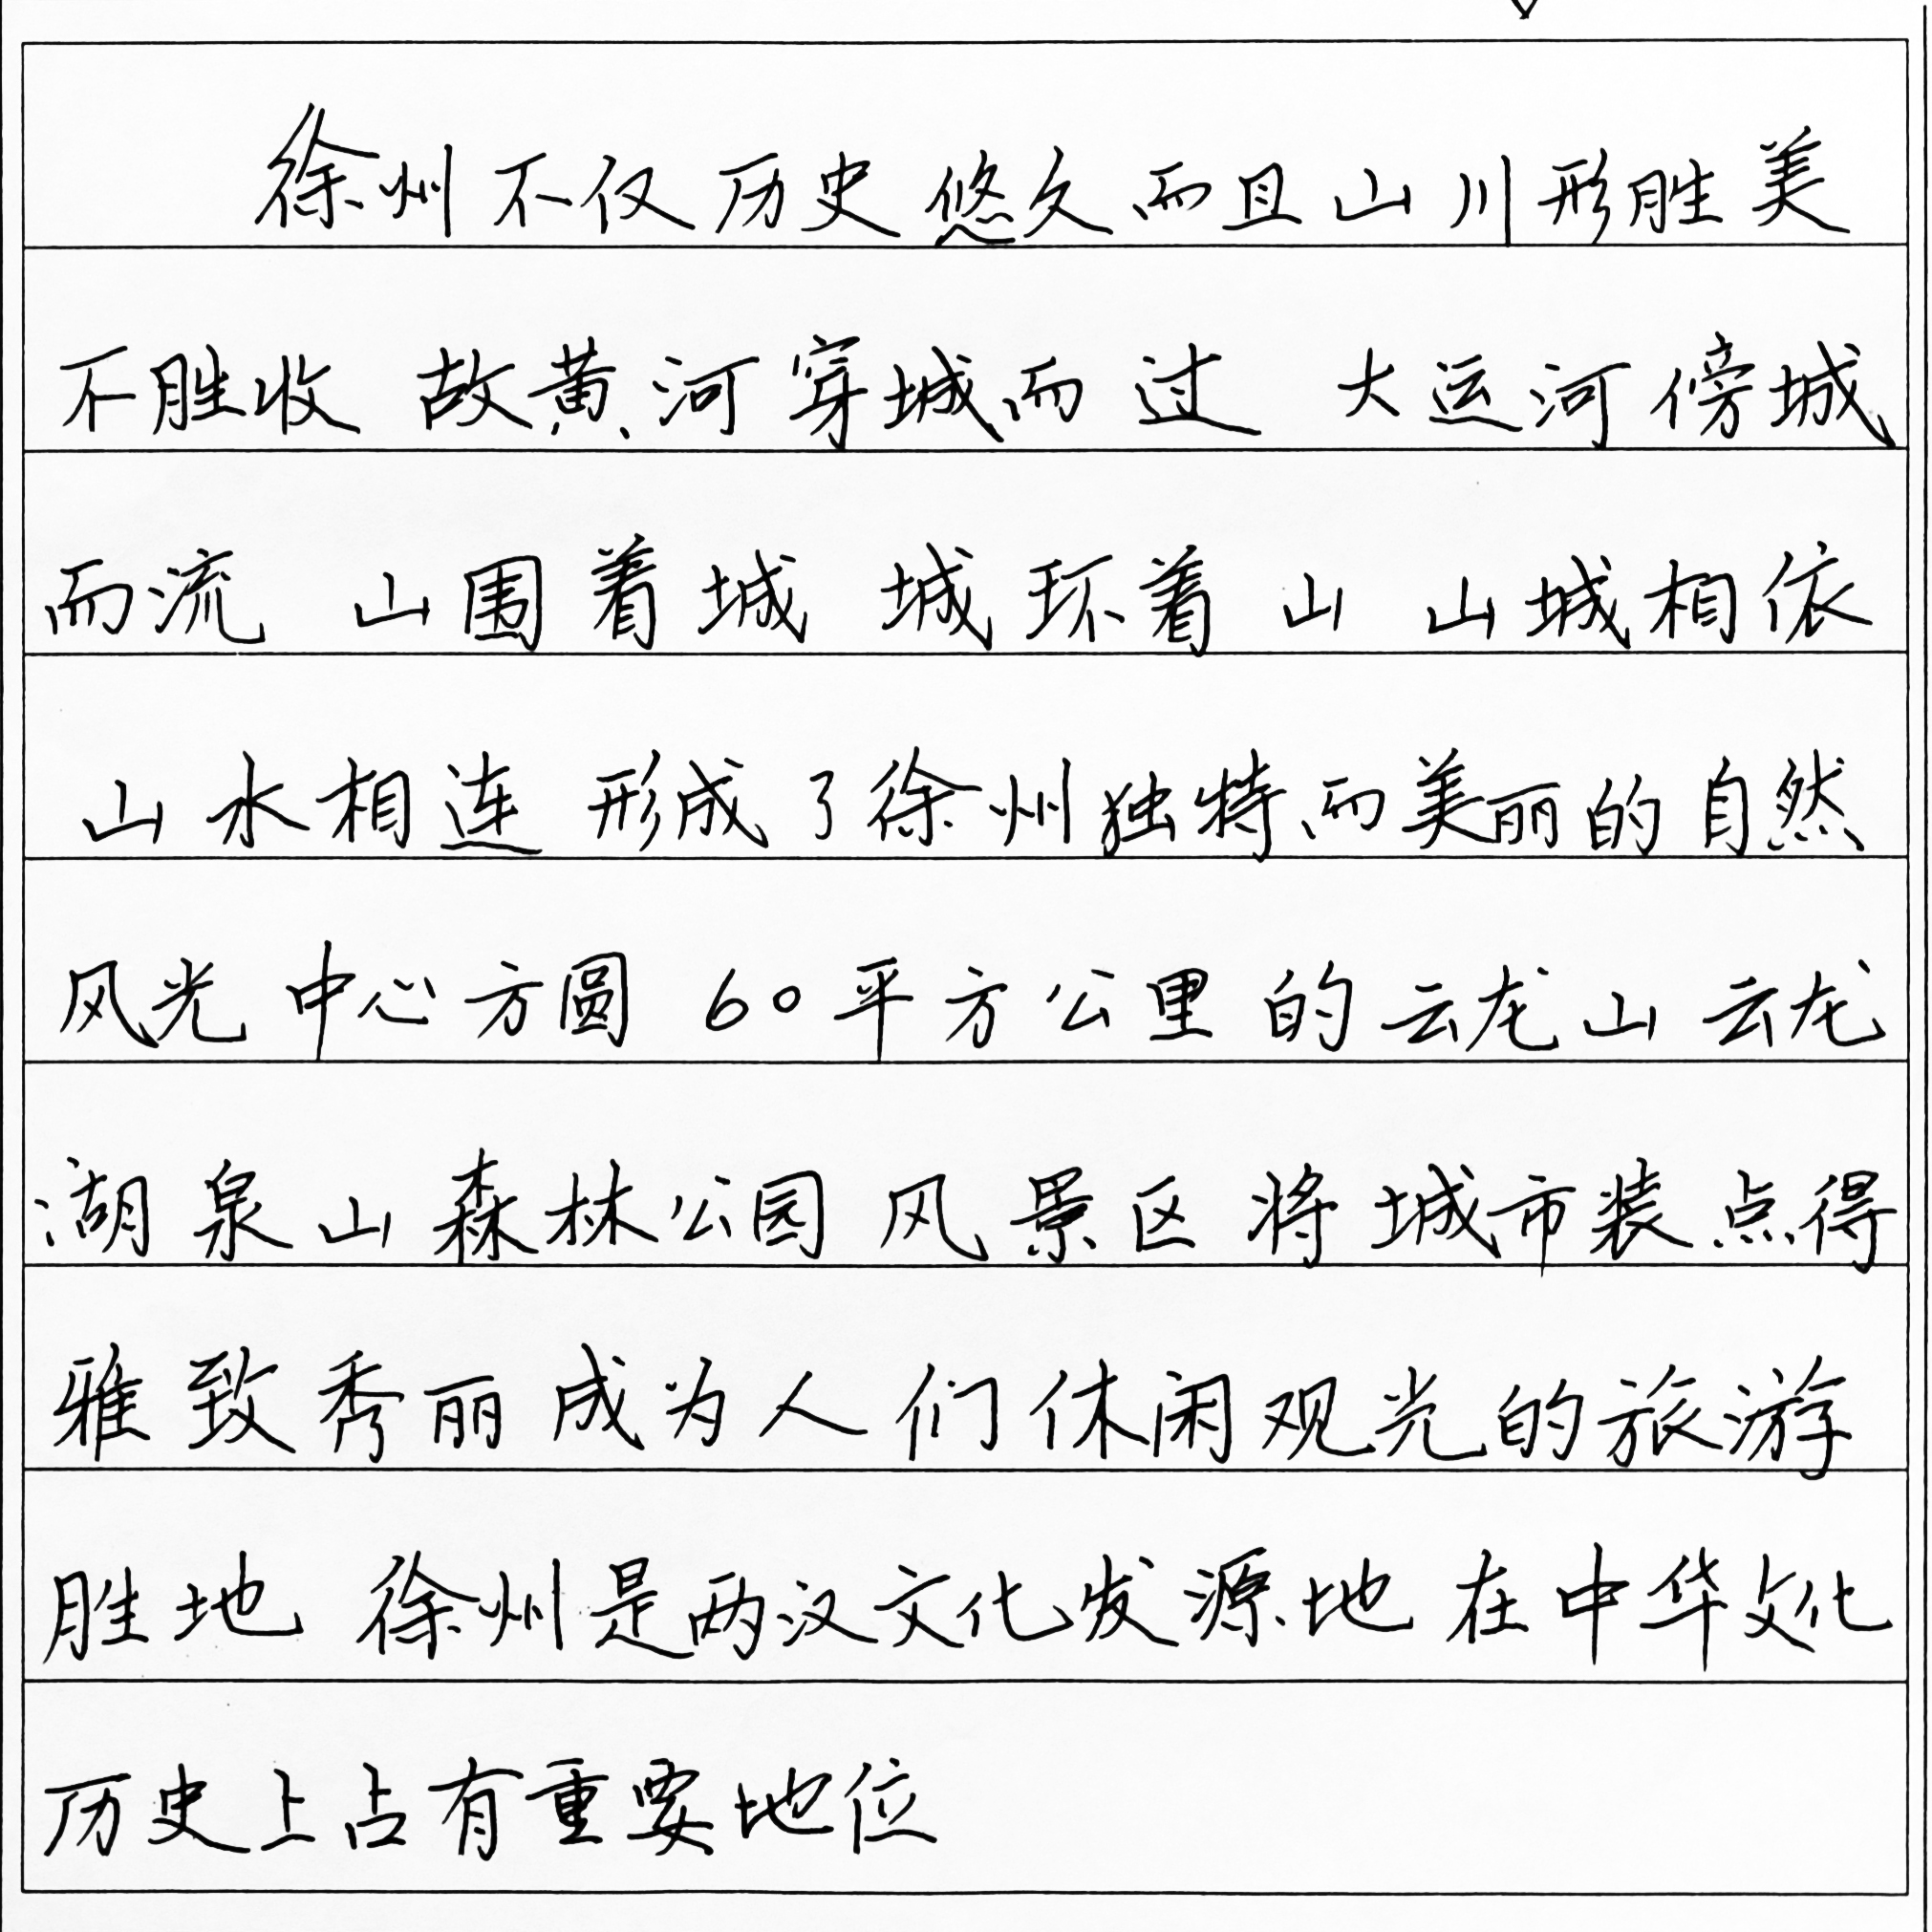 徐州不仅历史悠久而且山川形胜美
不胜收 故黄河穿城而过 大运河傍城
而流 山围着城 城环着山 山城相依
山水相连 形成了徐州独特而美丽的自然
风光 中心方圆 60平方公里的云龙山云龙
湖泉山森林公园风景区将城市装点得
雅致秀丽成为人们休闲观光的旅游
胜地 徐州是两汉文化发源地 在中华文化
历史上占有重要地位